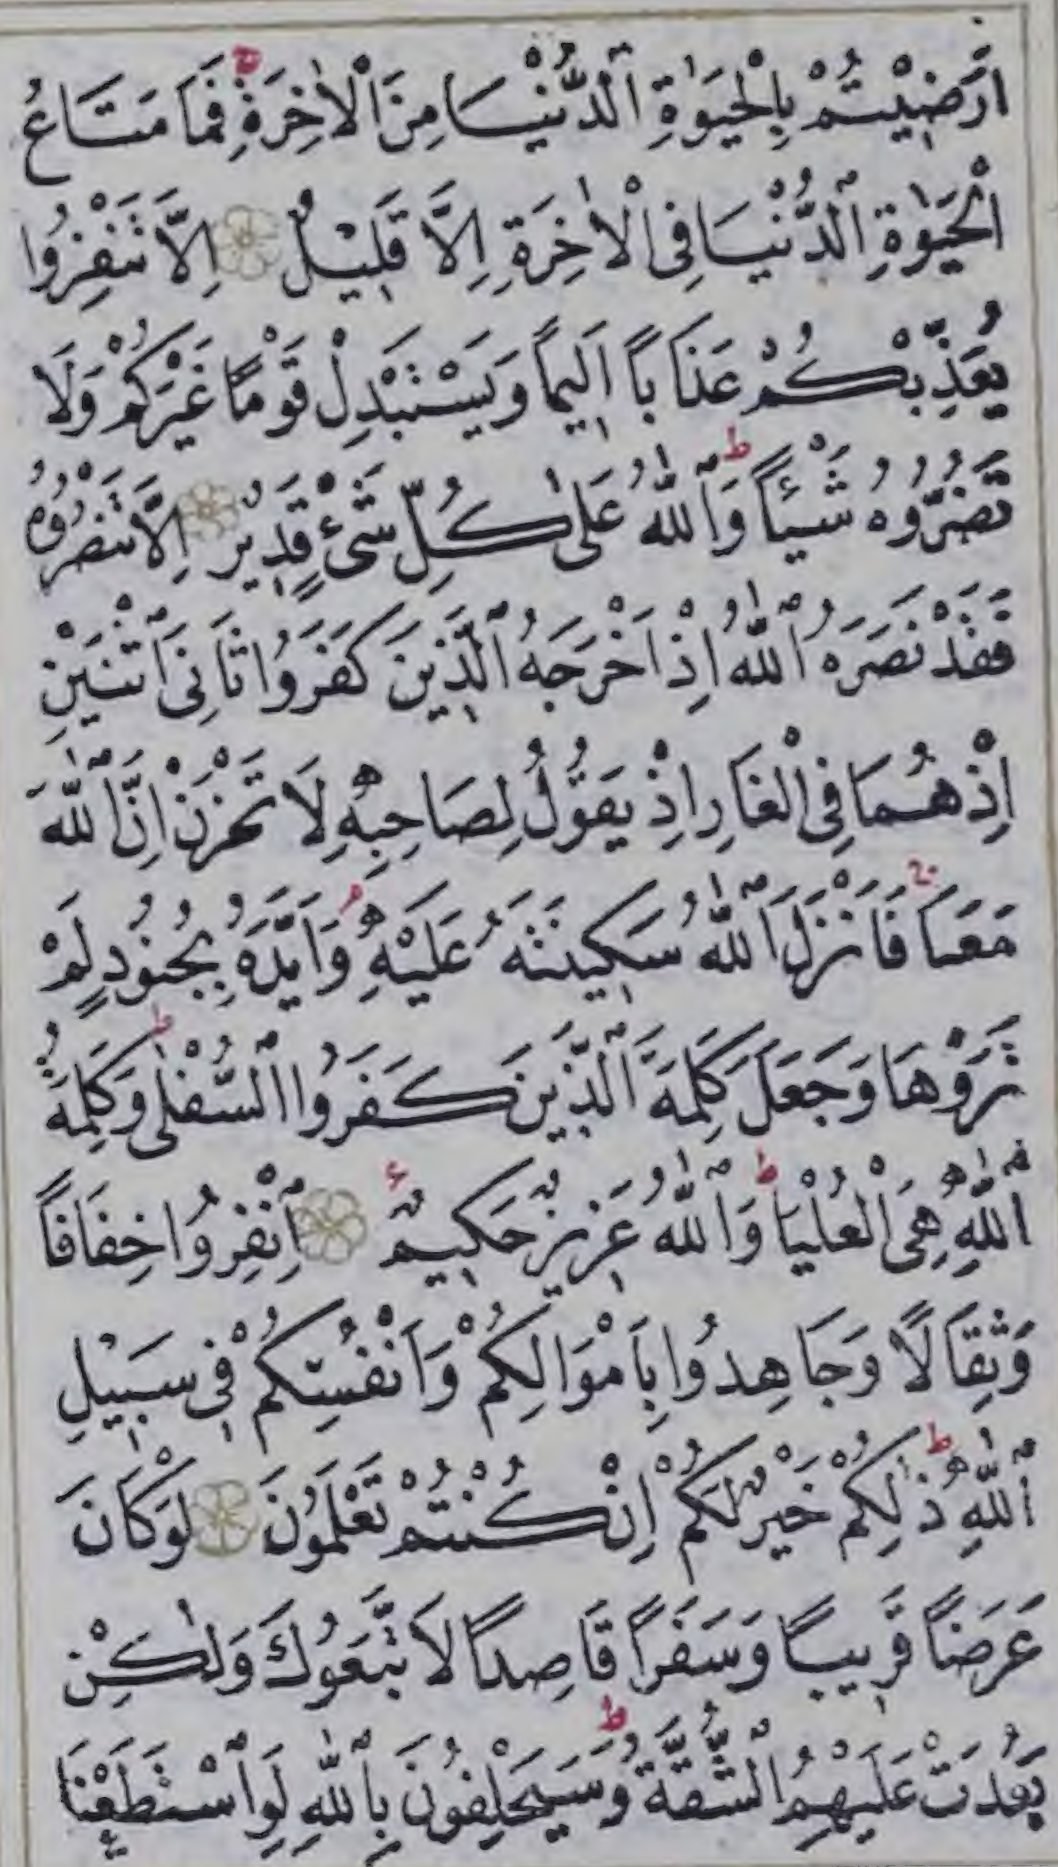 اَرَضِيْتُمْ بِالْحَيٰوةِ ٱلدُّنْيَا مِنَ الْاٰخِرَةِۚ فَمَا مَتَاعُ
الْحَيٰوةِ ٱلدُّنْيَا فِى الْاٰخِرَةِ اِلَّا قَلِيْلٌ اِلَّا تَنْفِرُوا
يُعَذِّبْكُمْ عَذَابًا اَلِيمًا وَيَسْتَبْدِلْ قَوْمًا غَيْرَكُمْ وَلَا
تَضُرُّوهُ شَيْئًاۜ وَٱللّٰهُ عَلٰى كُلِّ شَىْءٍ قَدِيْرٌ اِلَّا تَنْصُرُوهُ
فَقَدْ نَصَرَهُ ٱللّٰهُ اِذْ اَخْرَجَهُ ٱلَّذِينَ كَفَرُوا ثَانِىَ ٱثْنَيْنِ
اِذْ هُمَا فِى الْغَارِ اِذْ يَقُولُ لِصَاحِبِهٖ لَا تَحْزَنْ اِنَّ ٱللّٰهَ
مَعَنَاۚ فَاَنْزَلَ ٱللّٰهُ سَكِينَتَهُ عَلَيْهِ وَاَيَّدَهُ بِجُنُودٍ لَمْ
تَرَوْهَا وَجَعَلَ كَلِمَةَ ٱلَّذِينَ كَفَرُوا ٱلسُّفْلٰىۜ وَكَلِمَةُ
ٱللّٰهِ هِىَ الْعُلْيَاۜ وَٱللّٰهُ عَزِيزٌ حَكِيمٌ ٱِنْفِرُوا خِفَافًا
وَثِقَالًا وَجَاهِدُوا بِاَمْوَالِكُمْ وَاَنْفُسِكُمْ فِى سَبِيْلِ
ٱللّٰهِۜ ذٰلِكُمْ خَيْرٌ لَكُمْ اِنْ كُنْتُمْ تَعْلَمُونَ لَوْ كَانَ
عَرَضًا قَرِيبًا وَسَفَرًا قَاصِدًا لَاتَّبَعُوكَ وَلٰكِنْ
بَعُدَتْ عَلَيْهِمُ ٱلشُّقَّةُۜ وَسَيَحْلِفُونَ بِٱللّٰهِ لَوِ ٱسْتَطَعْنَا